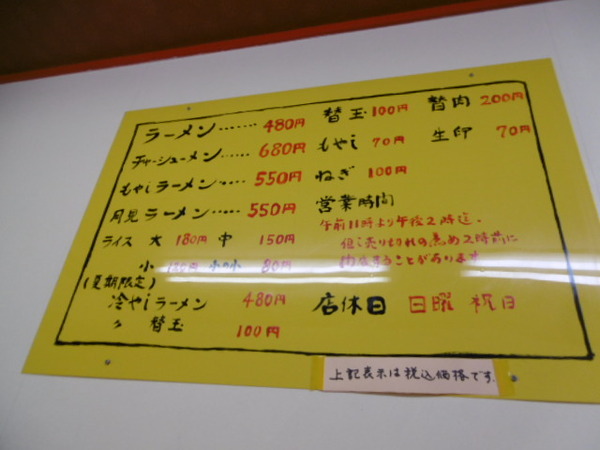 ラーメン…… 480円
チャーシューメン…… 680円
もやしラーメン…… 550円
月見ラーメン…… 550円
ライス 大 180円 中 150円
小 120円 小の小 80円
(夏期限定)
冷やしラーメン 480円
〃 替玉 100円
替玉 100円 替肉 200円
もやし 70円 生卵 70円
ねぎ 100円
営業時間
午前11時より午後2時迄、
但し売り切れの為め2時前に
閉店することがあります
店休日 日曜 祝日
上記表示は税込価格です。